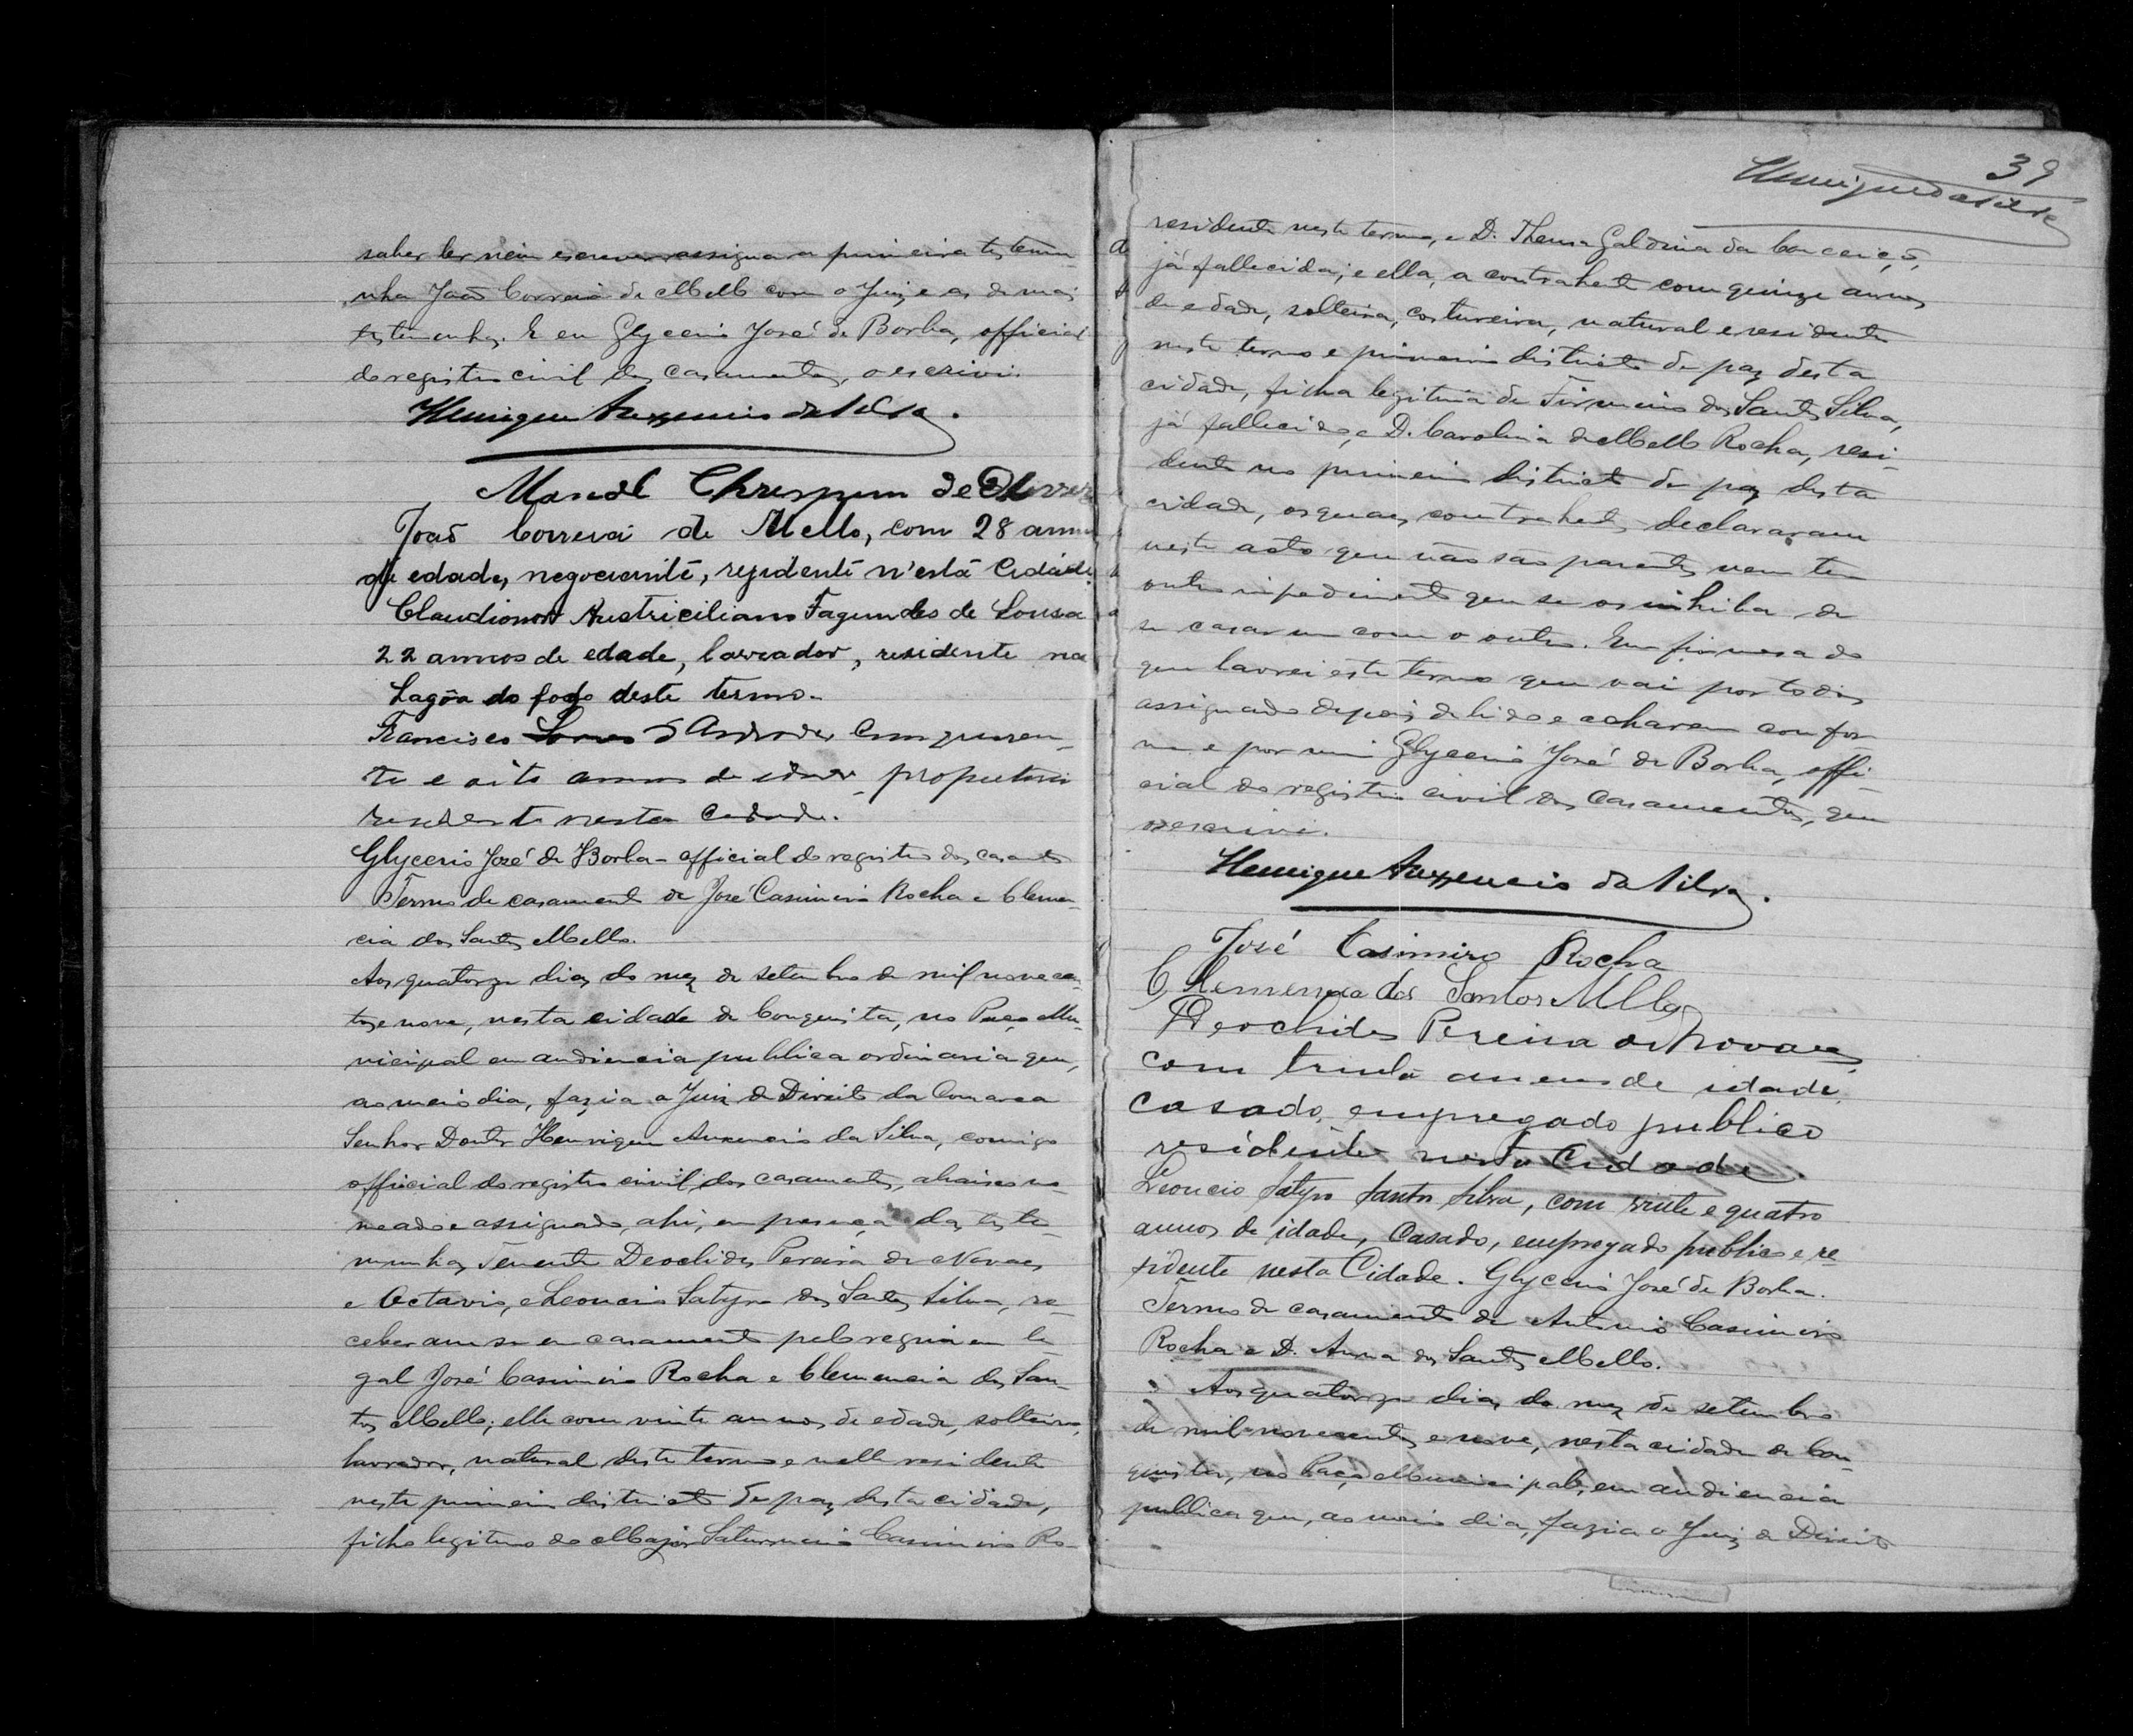 saber ler nem escrever assigna a primeira testemu-
nha João Correia de Mello com o Juiz e as demais
testemunhas. E eu Glycerio José de Borba, official
do registro civil dos casamentos, o escrivi.
Henrique Auxencio da Silva.
Manoel Chrespim de
João Correia de Mello, com 28 annos
de edade, negociante, residente n'esta Cidade.
Claudionor Austriciliano Fagundes de Sousa
22 annos de edade, lavrador, residente na
Lagôa do fogo deste termo.
Francisco d'Andrade com quaren-
ta e oito annos de edade, propietario
residente nesta cidade.
Glycerio José de Borba - official do registro dos casamtos
Termo de casamento de José Casimiro Rocha e Clemen-
cia dos Santos Mello.
Aos quatorze dias do mez de setembro de mil novecen-
tos e nove, nesta cidade de Conquista, no Paço Mu-
nicipal em audiencia publica ordinaria que,
ao meio dia, fazia o Juiz de Direito da Comarca
Senhor Doutor Henrique Auxencio da Silva, comigo
official do registro civil dos casamentos, abaixo no-
meado e assignado, ahi, em presença das teste-
munhas Tenente Deoclides Pereira de Novaes
e Octavio, e Leoncio Satyro dos Santos Silva, re-
ceberam se em casamento pelo regimem le-
gal José Casimiro Rocha e Clemencia dos San-
tos Mello; elle com vinte annos de edade, solteiro,
lavrador, natural deste termo e nelle residente
neste primeiro districto de paz desta cidade,
filho legitimo do Major Saturnino Casimiro Ro-
39
Henrique da Silva
residente neste termo, e D. Galdina da Conceição,
já fallecida; e ella, a contrahente com quinze annos
de edade, solteira, costureira, natural e residente
neste termo e primeiro districto de paz desta
cidade, filha legitima de Firmino dos Santos Silva,
já fallecido, e D. Carolina de Mello Rocha, resi-
dente no primeiro districto de paz desta
cidade, os quaes contrahentes declararam
neste acto que não são parentes nem tem
outro impedimento que se os inhiba de
se casar um com o outro. Em firmesa do
que lavrei este termo que vai por todos
assignado depois de lido e acharem confor-
me e por mim Glycerio José de Borba, offi-
cial do registro civil dos casamentos, que
o escrivi.
Henrique Auxencio da Silva.
José Casimiro Rocha
Clemencia dos Santos Mello
Deoclides Pereira de Novaes,
com trinta annos de idade,
casado, empregado publico
residente nesta Cidade.
Leoncio Satyro Santos Silva, com vinte e quatro
annos de idade, casado, empregado publico e re-
sidente nesta Cidade. Glycerio José de Borba.
Termo de casamento de Antonio Casimiro
Rocha e D. Anna dos Santos Mello.
Aos quatorze dias do mez de setembro
de mil novecentos e nove, nesta cidade de Con-
quista, no Paço Municipal, em audiencia
publica que, ao meio dia, fazia o Juiz de Direito